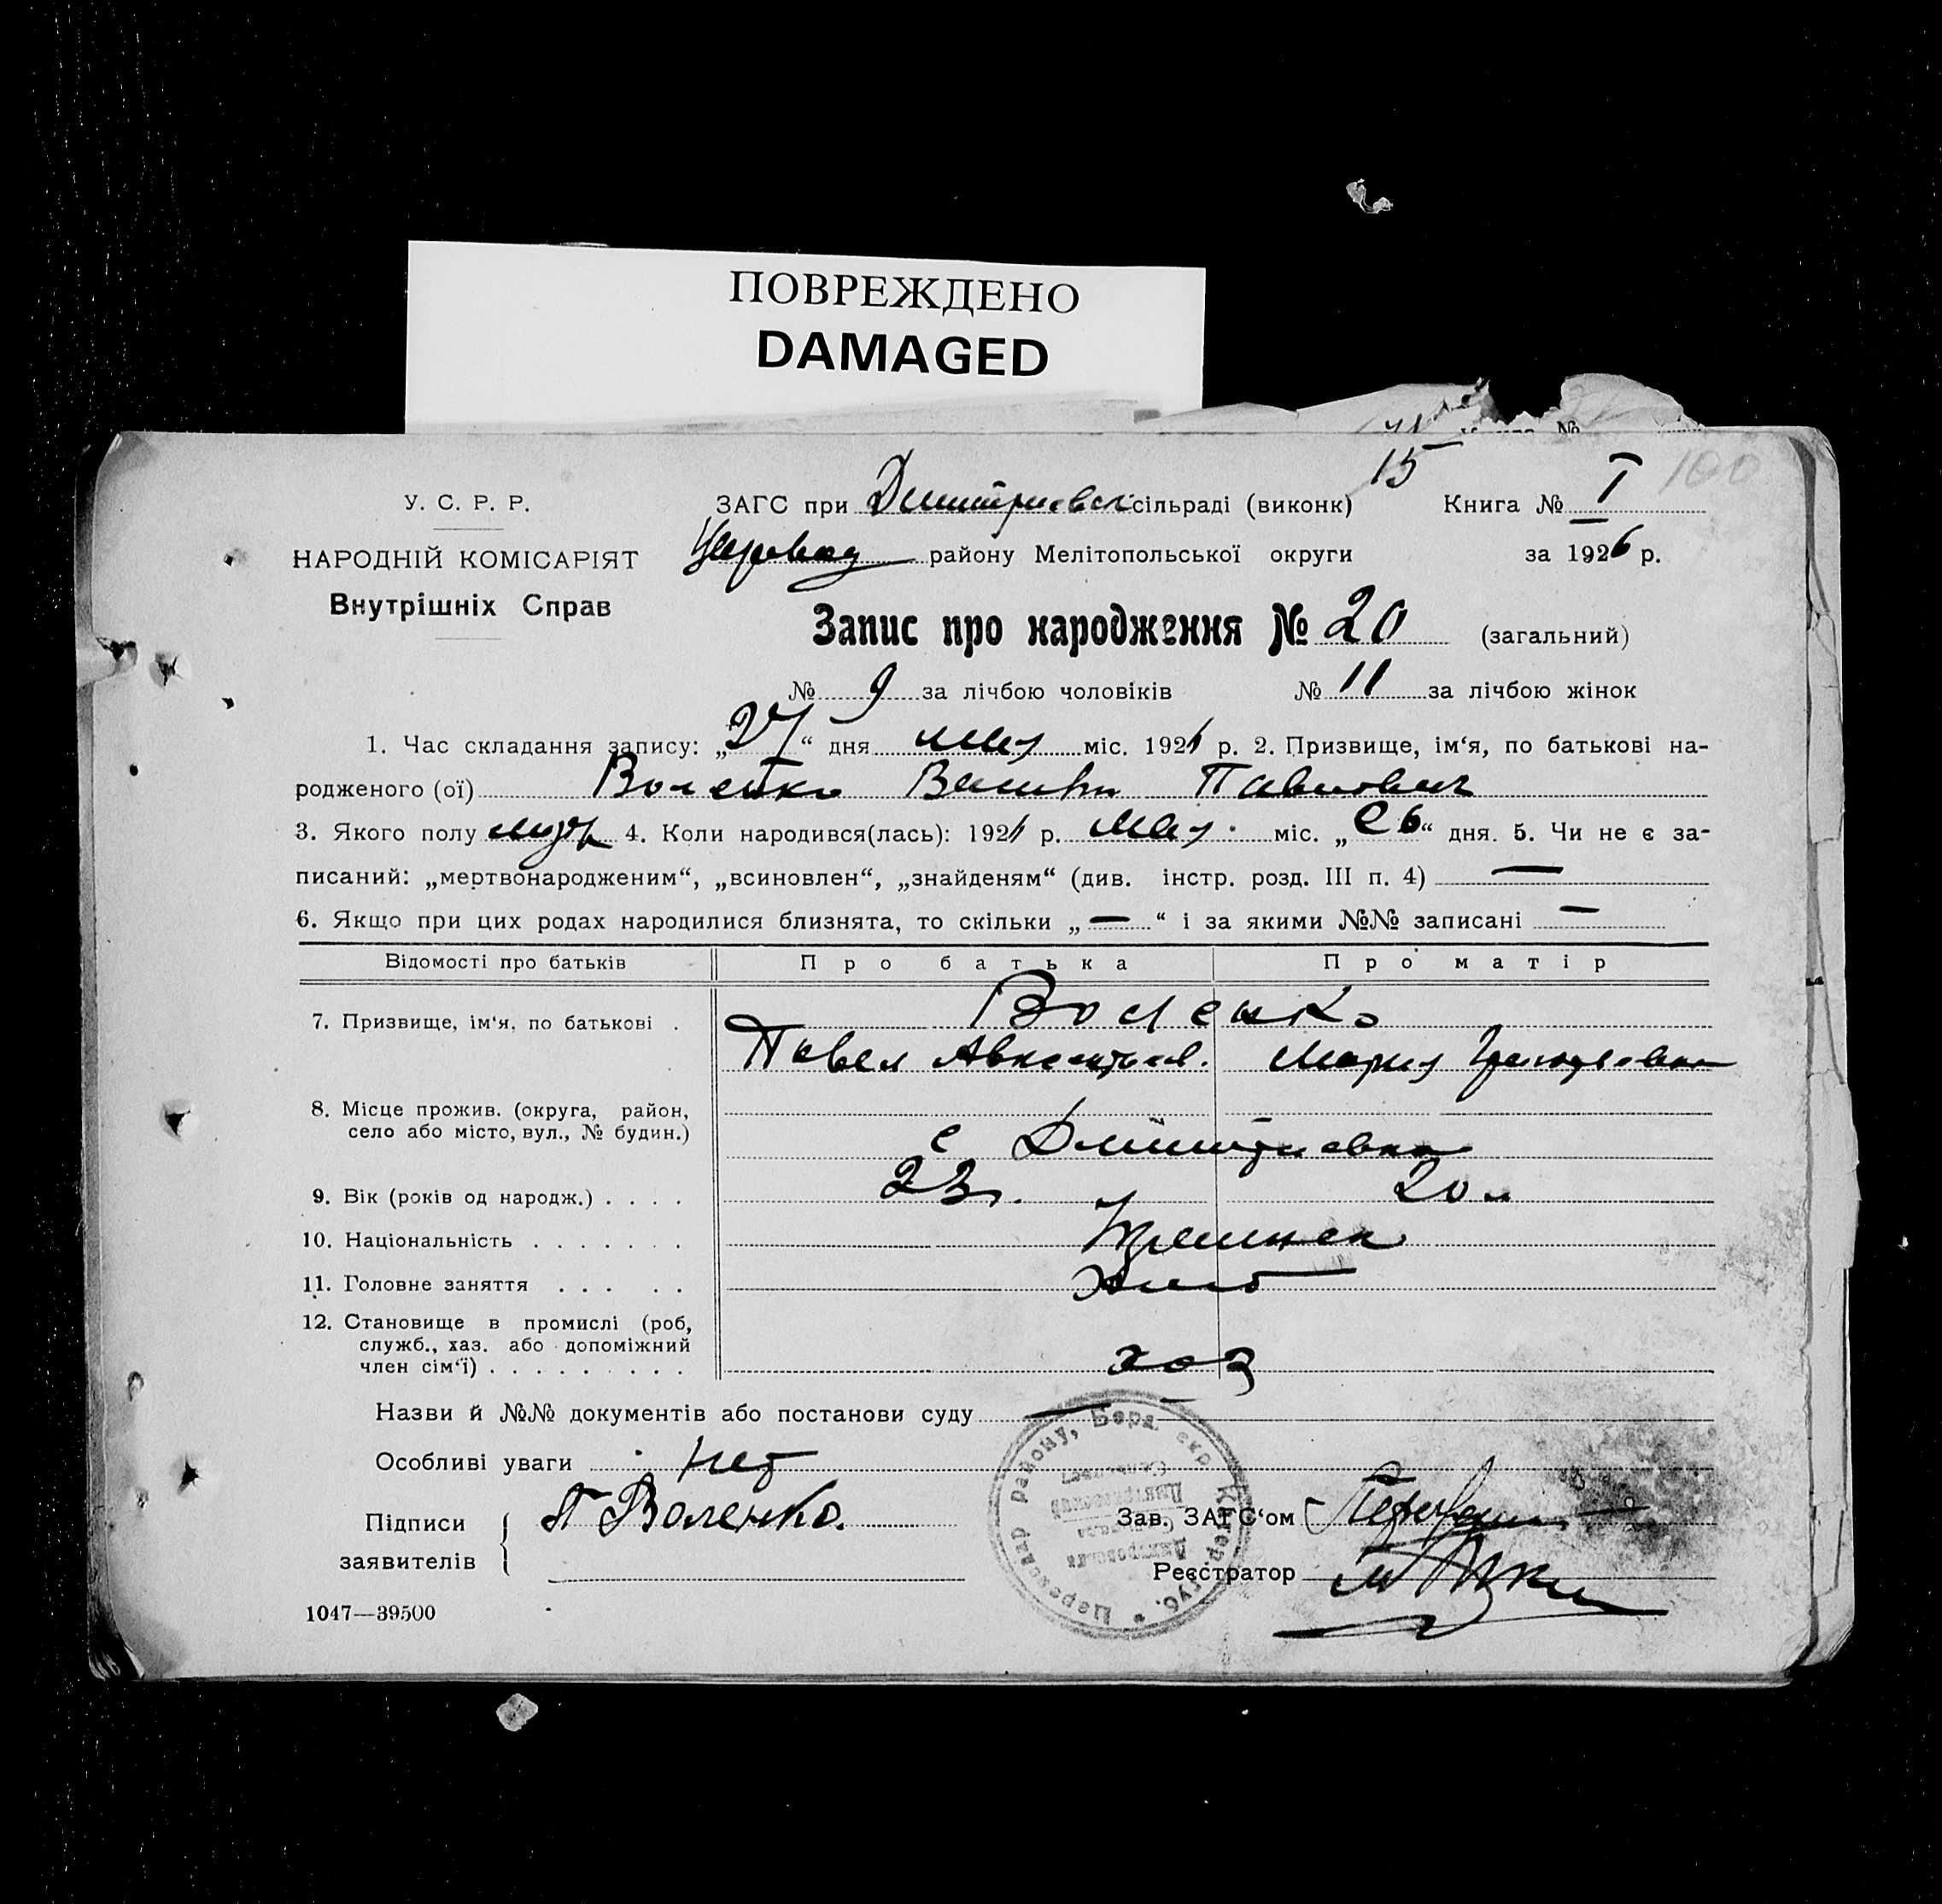 ПОВРЕЖДЕНО
DAMAGED
15
100
У. С. Р. Р.
НАРОДНІЙ КОМІСАРІЯТ
Внутрішніх Справ
ЗАГС при Дмитриевск сільраді (виконк) Книга № I
району Мелітопольської округи за 1926 р.
Запис про народження № 20 (загальний)
№ 9 за лічбою чоловіків № 11 за лічбою жінок
1. Час складання запису: „27“ дня мая міс. 192 р. 2. Призвище, ім‘я, по батькові на-
родженого (ої) Воленко Павлович
3. Якого полу муж 4. Коли народився(лась): 192 р. мая міс. „26“ дня. 5. Чи не є за-
писаний: „мертвонародженим“, „всиновлен“, „знайденям“ (див. інстр. розд. III п. 4) —
6. Якщо при цих родах народилися близнята, то скільки „—“ і за якими №№ записані —
Відомості про батьків Про батька Про матір
7. Призвище, ім‘я, по батькові . Воленко
Павел Авксентьев. Мария Григорьевна
8. Місце прожив. (округа, район,
село або місто, вул., № будин.) с Дмитриевка
9. Вік (років од народж.) . . . . 23 г. 20 л
10. Національність . . . . . . .
11. Головне заняття . . . . . Хлеб
12. Становище в промислі (роб,
служб., хаз. або допоміжний
член сім‘ї) . . . . . . . . . хоз
Назви й №№ документів або постанови суду —
Особливі уваги нет
Підписи П Воленко.
заявителів
Зав. ЗАГС‘ом
Реєстратор
району, Берд. окр. Катер. губ.
1047—39500